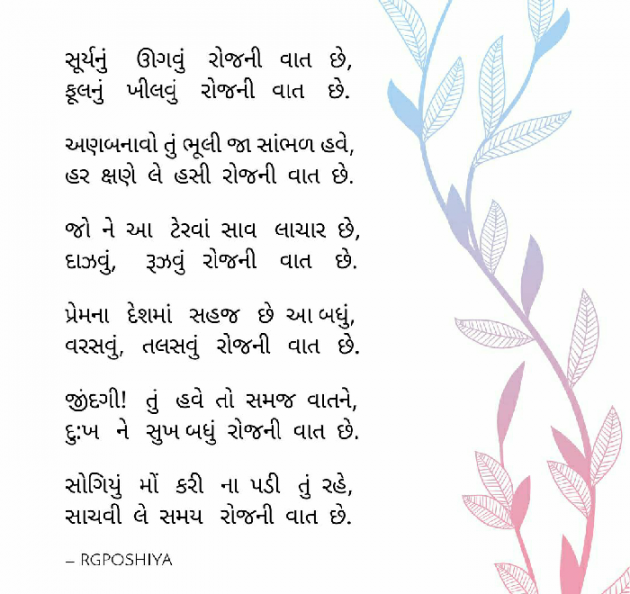 સૂર્યનું ઊગવું રોજની વાત છે,
ફૂલનું ખીલવું રોજની વાત છે.
અણબનાવો તું ભૂલી જા સાંભળ હવે,
હર ક્ષણે લે હસી રોજની વાત છે.
જો ને આ ટેરવાં સાવ લાચાર છે,
દાઝવું, રૂઝવું રોજની વાત છે.
પ્રેમના દેશમાં સહજ છે આ બધું,
વરસવું, તલસવું રોજની વાત છે.
જીંદગી! તું હવે તો સમજ વાતને,
દુ:ખ ને સુખ બધું રોજની વાત છે.
સોગિયું મોં કરી ના પડી તું રહે,
સાચવી લે સમય રોજની વાત છે.
– RGPOSHIYA